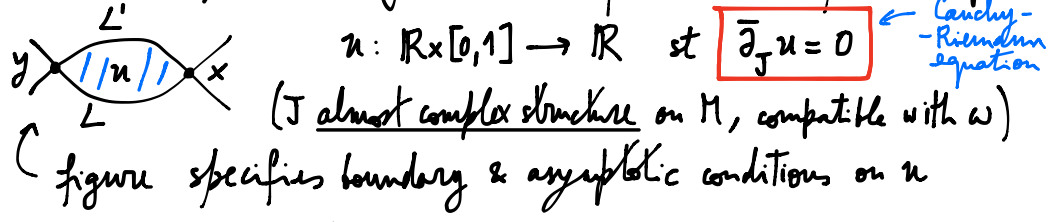 L'
y u x
L
u : ℝ×[0,1] → ℝ st ∂̄_J u = 0
Cauchy-
-Riemann
equation
(J almost complex structure on M, compatible with ω)
figure specifies boundary & asymptotic conditions on u